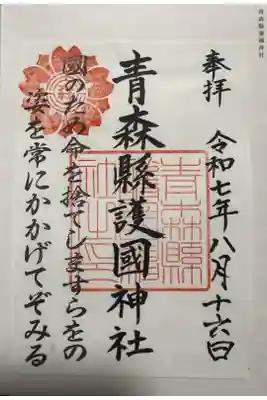 青森縣護國神社
奉拝
令和七年八月十六日
青森縣護國神社
國のため命を捨てしますらをの
姿を常にかかげてぞみる